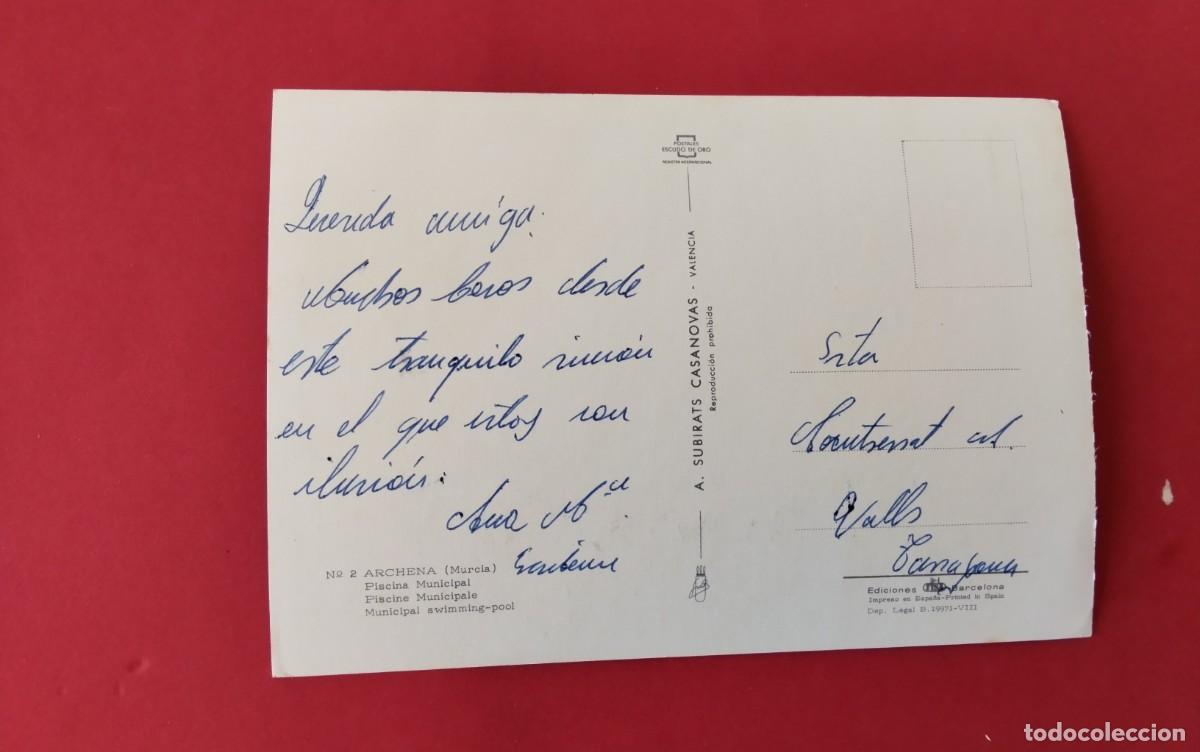 Querida amiga:
Muchos besos desde
este tranquilo rincón
en el que estoy con
ilusión.
Ana Mª
Escríbeme
Nº 2 ARCHENA (Murcia)
Piscina Municipal
Piscine Municipale
Municipal swimming-pool
POSTALES
ESCUDO DE ORO
REGISTRO INTERNACIONAL
A. SUBIRATS CASANOVAS - VALENCIA
Reproducción prohibida
Srta
Montserrat
Valls
Tarragona
Ediciones Barcelona
Impreso en España-Printed in Spain
Dep. Legal B. 19971-VIII
todocoleccion